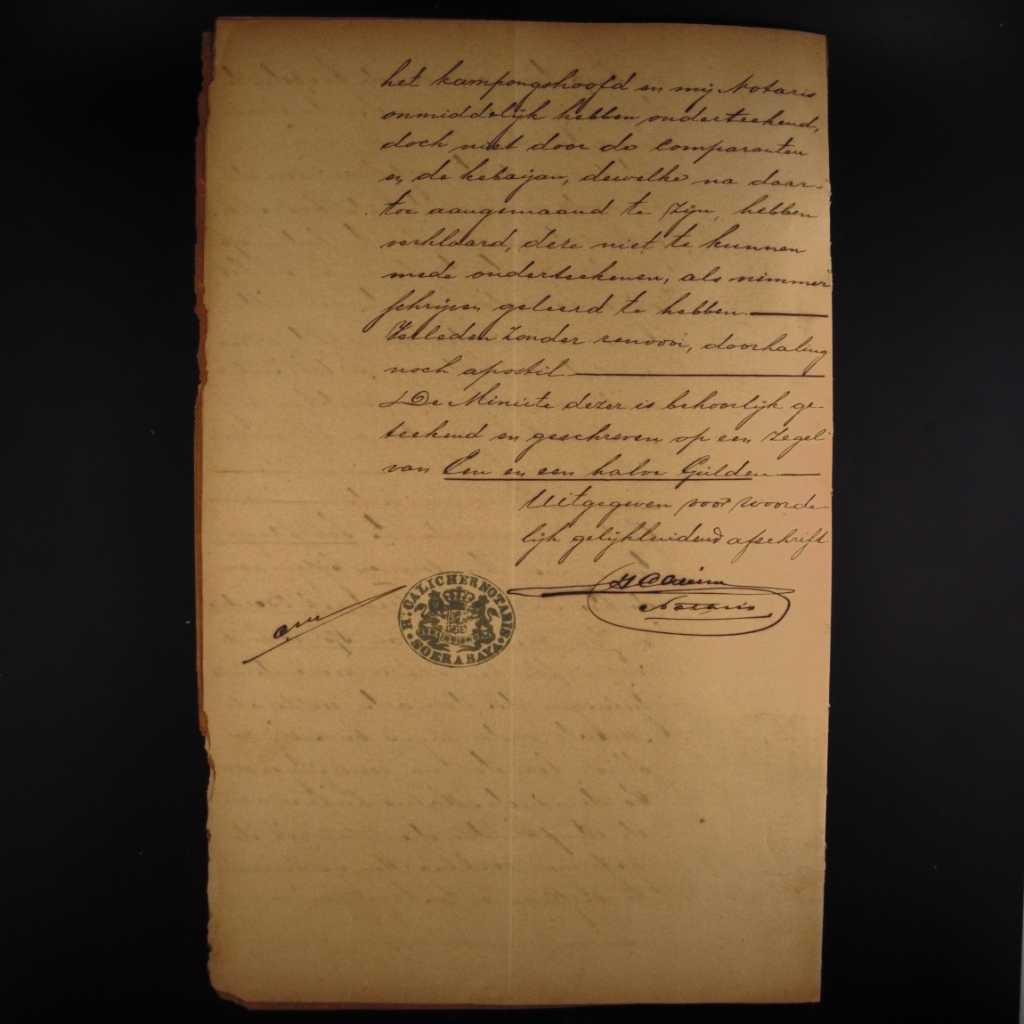 het kampongshoofd en mij Notaris
onmiddelijk hebben onderteekend,
doch niet door de Comparanten
en de kebaijan, dewelke na daar-
toe aangemaand te zijn, hebben
verklaard, deze niet te kunnen
mede onderteekenen, als nimmer
schrijven geleerd te hebben.
Verleden zonder renvooi, doorhaling
noch apostil
De Minute dezer is behoorlijk ge-
teekend en geschreven op een zegel
van Een en een halve Gulden
Uitgegeven voor woorde-
lijk gelijkluidend afschrift
Notaris
H: CALICHER NOTARIS
SOERABAYA